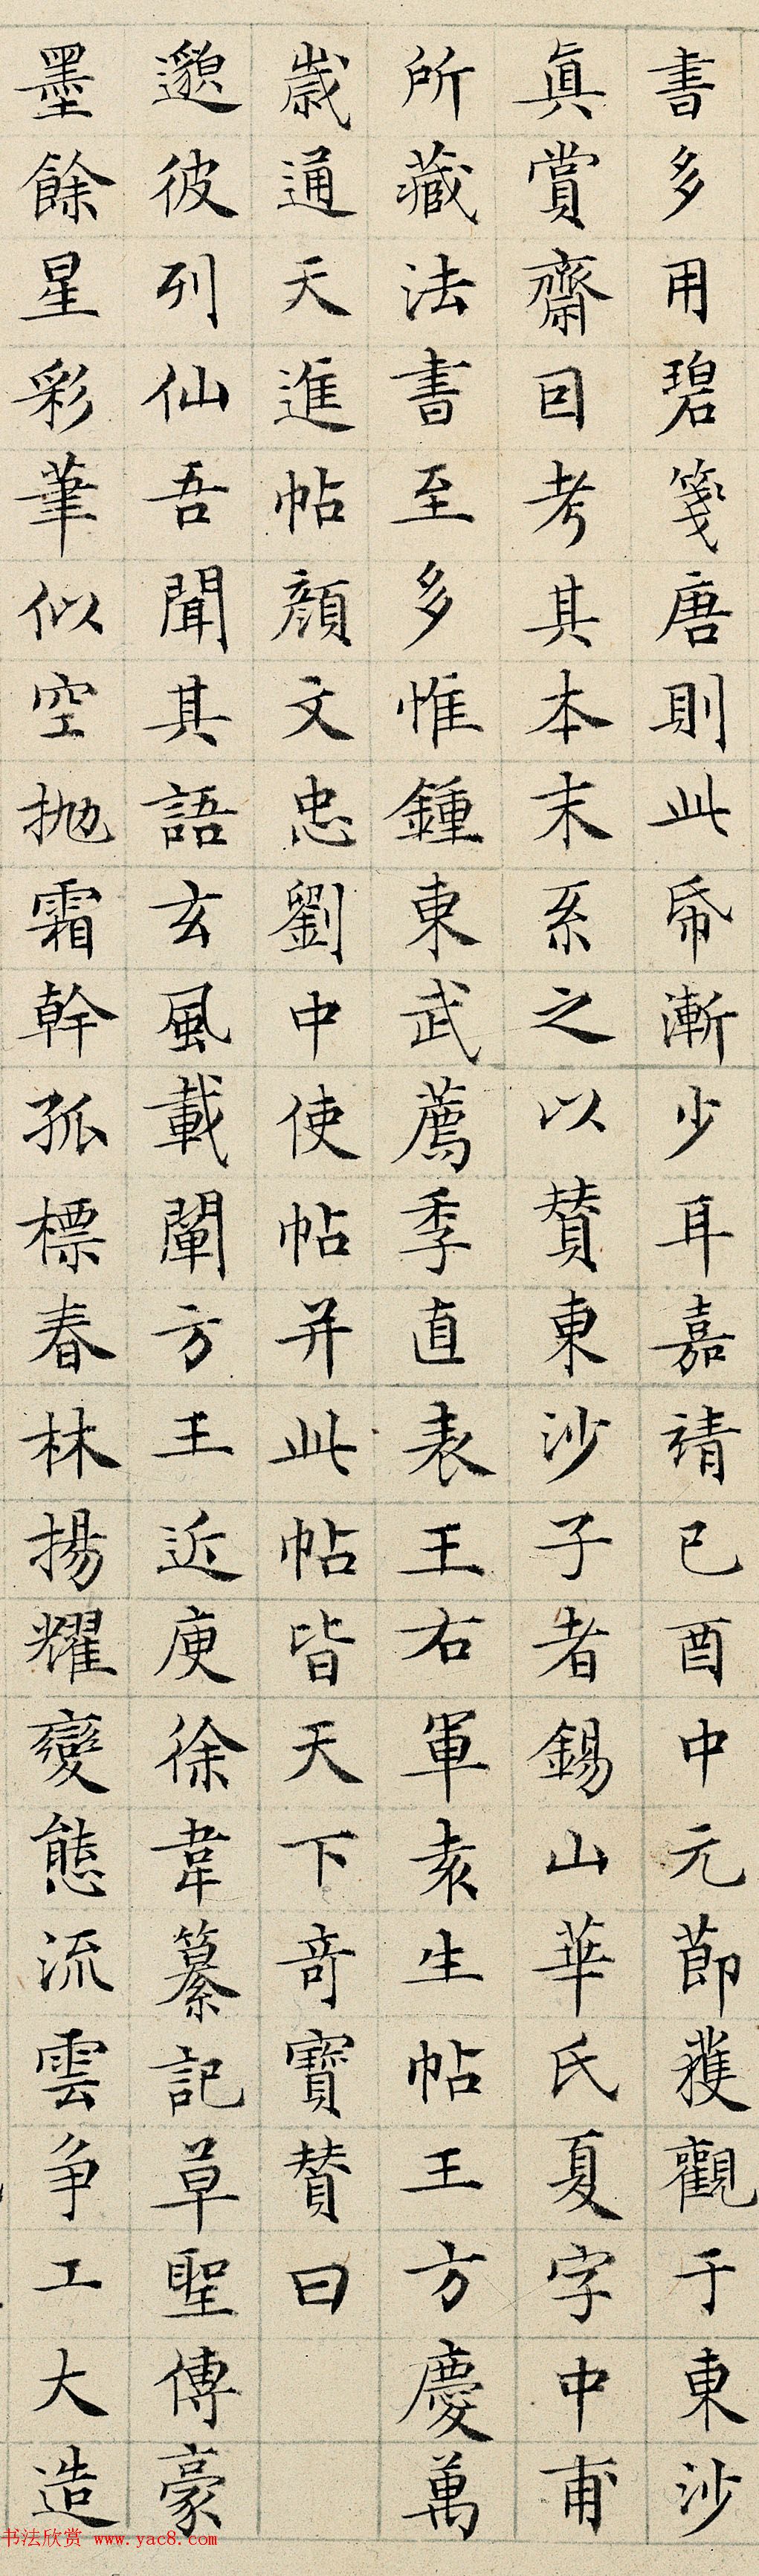 書多用碧箋唐則此帋漸少耳嘉靖已酉中元節獲觀于東沙
真賞齋因考其本末系之以賛東沙子者錫山華氏夏字中甫
所藏法書至多惟鍾東武薦季直表王右軍袁生帖王方慶萬
歲通天進帖顔文忠劉中使帖并此帖皆天下奇寶賛曰
邈彼列仙吾聞其語玄風載闡方王近庾徐韋纂記草聖傳豪
墨餘星彩筆似空抛霜幹孤標春林揚耀變態流雲争工大造
书法欣赏 www.yac8.com